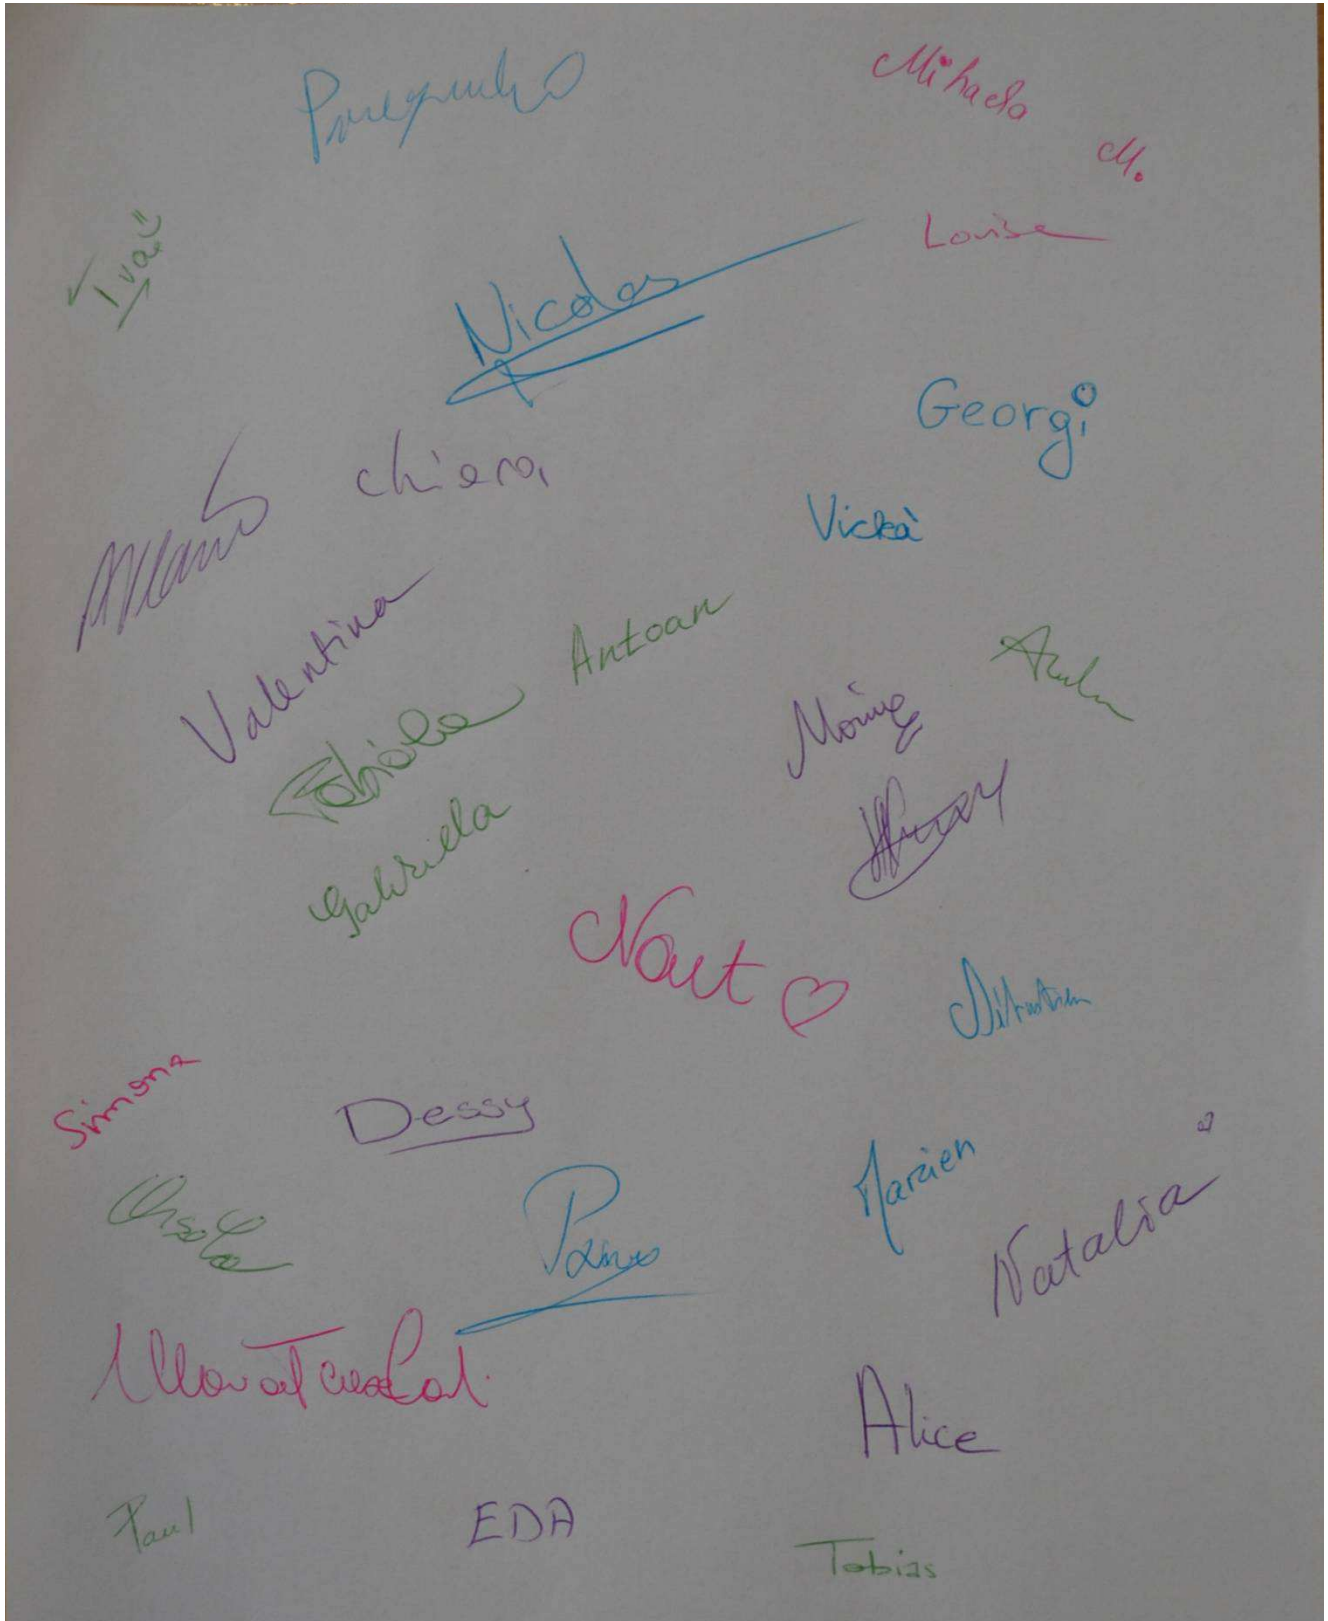 Mihaela
M.
Louise
Ivan
Nicolas
Georgi
Chiara
Vickà
Valentina
Antoan
Fabiola
Gabriela
Nout
Simona
Dessy
Marzien
Orsola
Natalia
Alice
Paul
EDA
Tobias